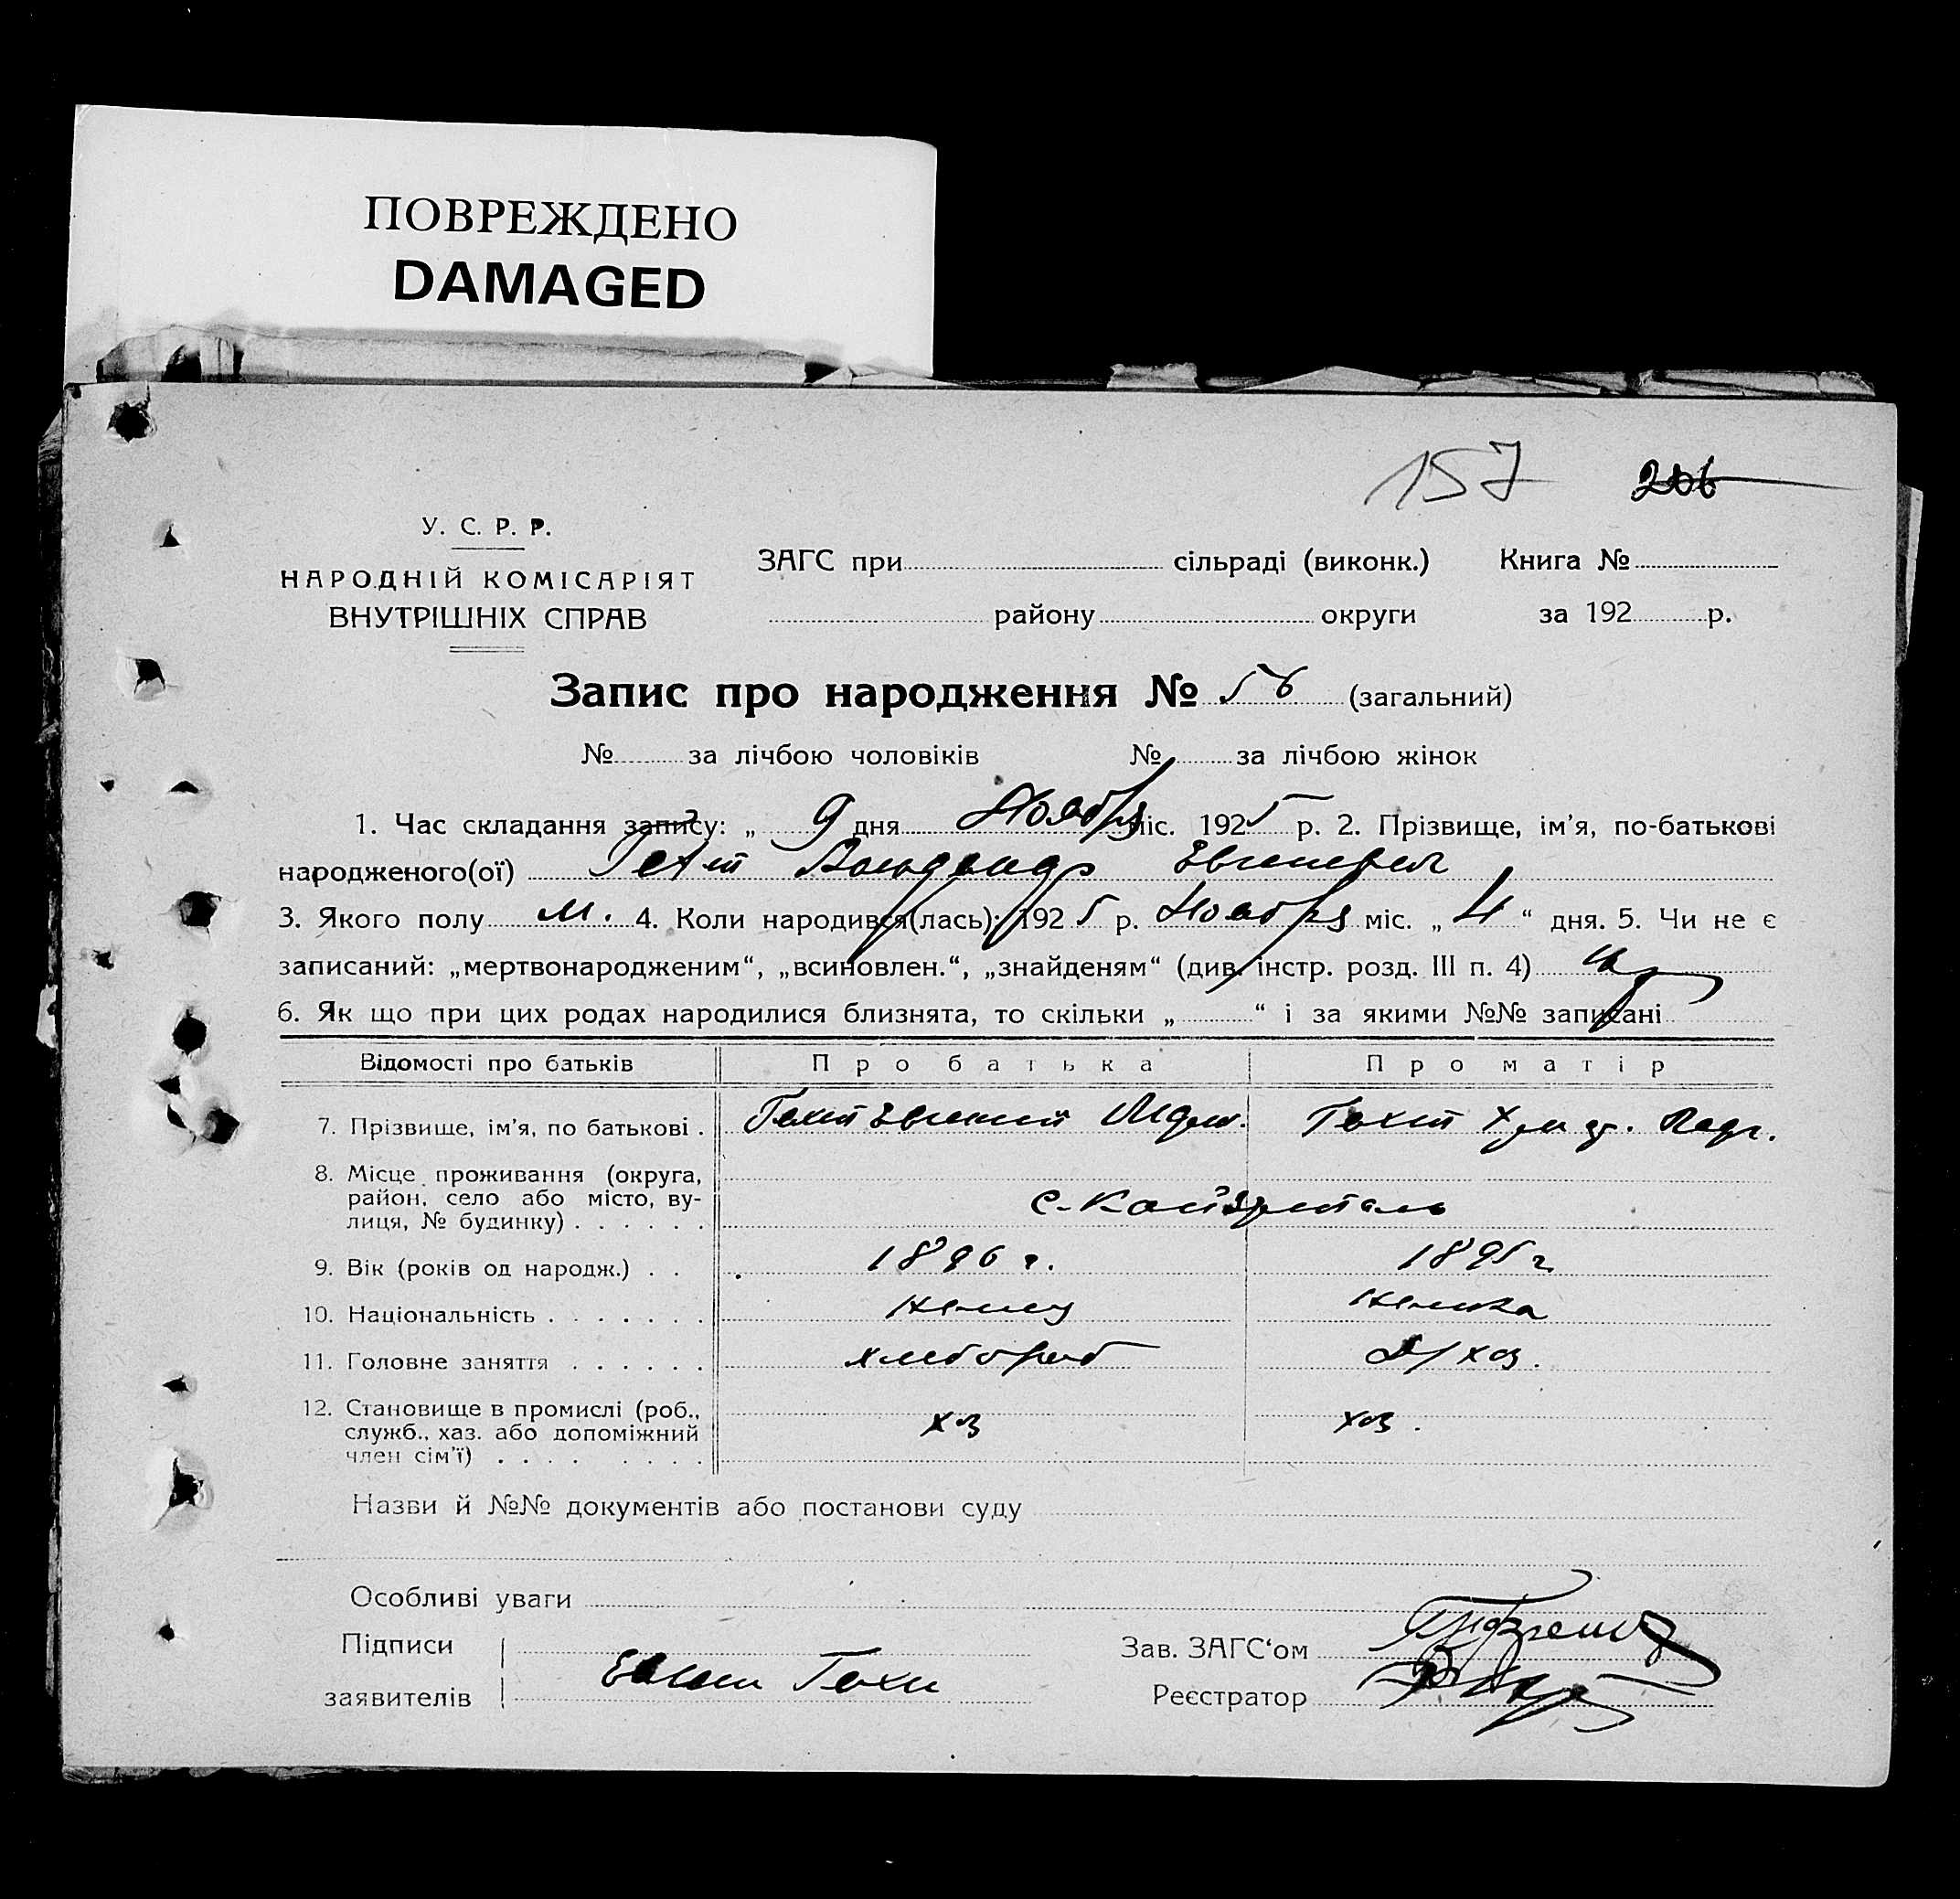 ПОВРЕЖДЕНО
DAMAGED
157 206
У. С. Р. Р.
НАРОДНІЙ КОМІСАРІЯТ
ВНУТРІШНІХ СПРАВ
ЗАГС при сільраді (виконк.) Книга №
району округи за 192 р.
Запис про народження № 56 (загальний)
№ за лічбою чоловіків № за лічбою жінок
1. Час складання запису: „ 9 дня Ноября міс. 1925 р. 2. Прізвище, ім'я, по-батькові
народженого(ої) Гехт
3. Якого полу м. 4. Коли народився(лась): 1925 р. Ноября міс. „ 4 “ дня. 5. Чи не є
записаний: „мертвонародженим“, „всиновлен.“, „знайденям“ (див. інстр. розд. III п. 4)
6. Як що при цих родах народилися близнята, то скільки „ “ і за якими №№ записані
Відомості про батьків Про батька Про матір
7. Прізвище, ім'я, по батькові . Гехт Евгений Гехт
8. Місце проживання (округа,
район, село або місто, ву-
лиця, № будинку) . . . . . . с. Кайзерталь
9. Вік (років од народж.) . . 1896 г. 1895 г
10. Національність . . . . . . . немец немка
11. Головне заняття . . . . . . хлебороб Д/хоз.
12. Становище в промислі (роб.,
служб., хаз. або допоміжний хоз хоз.
член сім'ї) . . . . . . . .
Назви й №№ документів або постанови суду
Особливі уваги
Підписи Зав. ЗАГС‘ом
заявителів Реєстратор